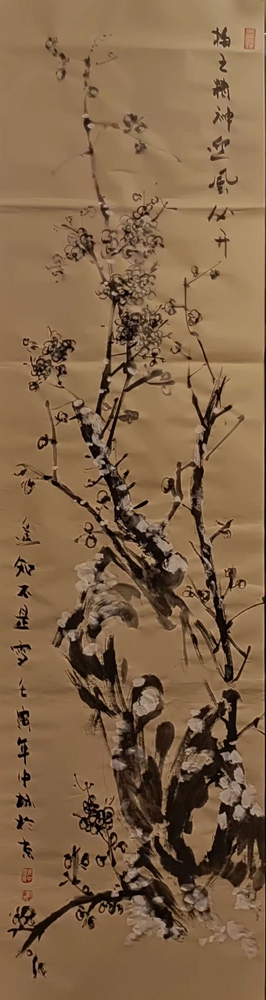 梅之精神迎风公开
遥知不是雪 壬寅年中林于京